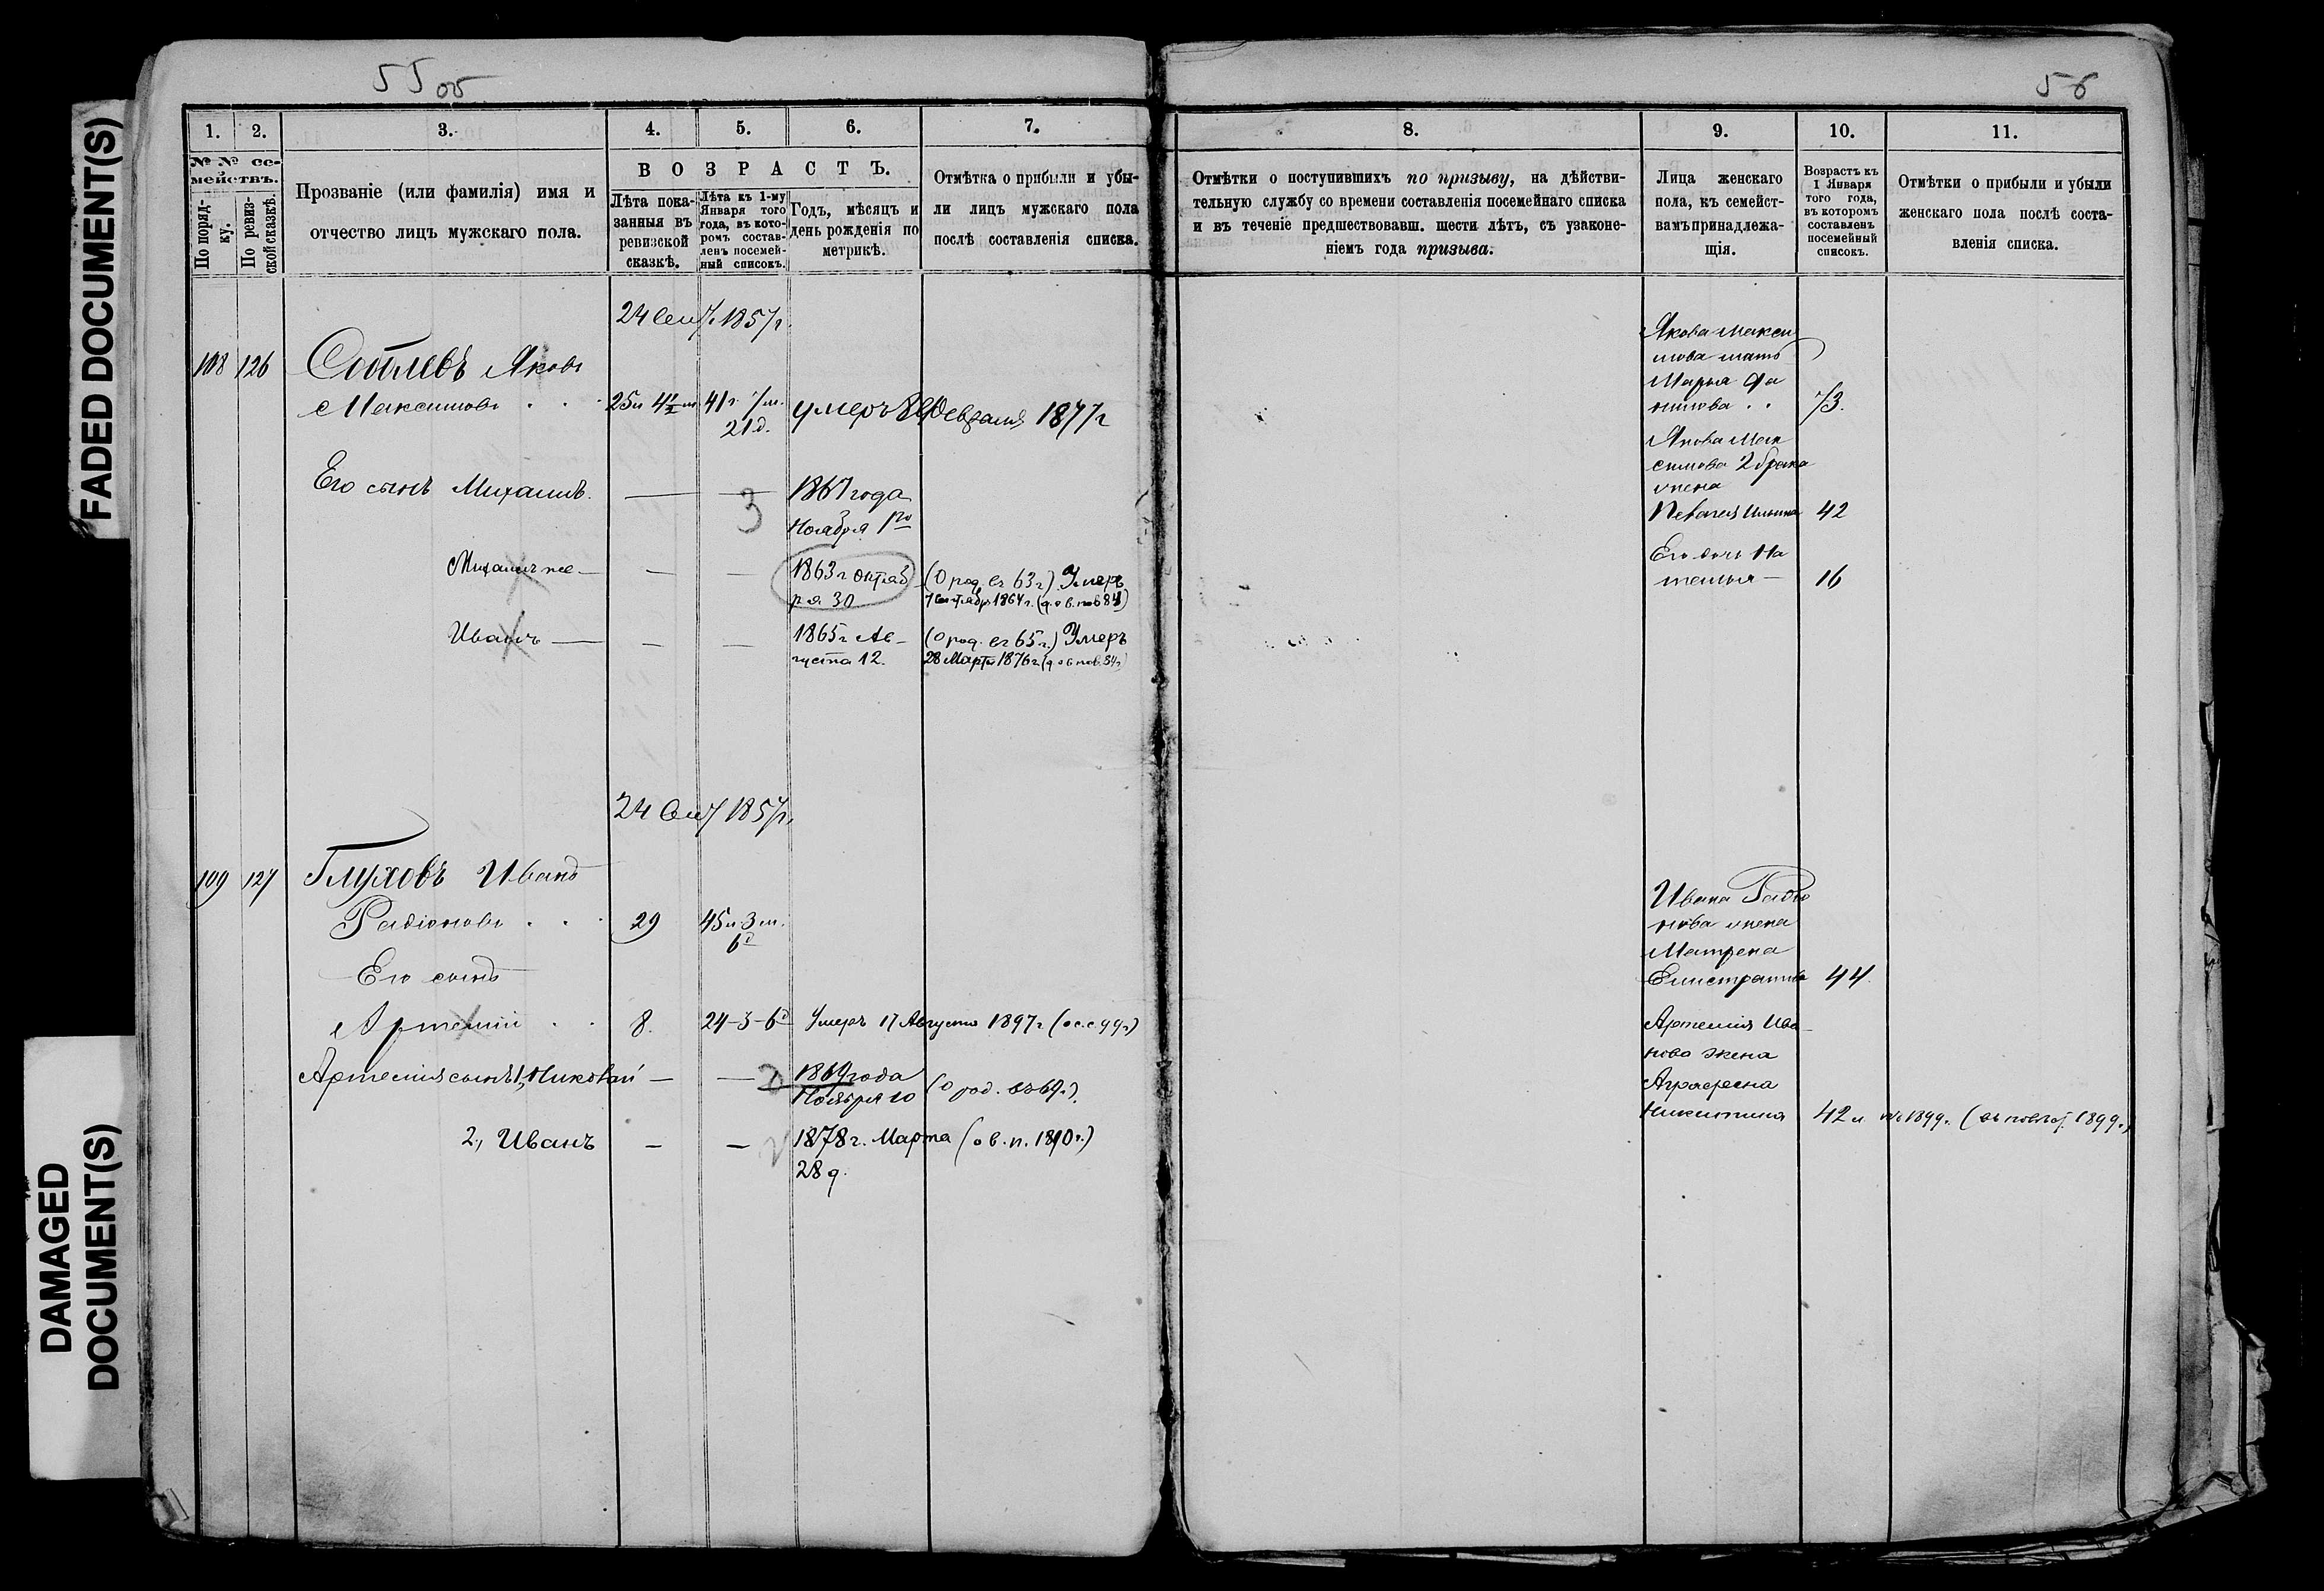 FADED DOCUMENT(S)
DAMAGED
DOCUMENT(S)
55 об
56
1. 2. 3. 4. 5. 6. 7.
№ № се-
мействъ.
По поряд-
ку.
По ревиз-
ской сказкѣ.
Прозваніе (или фамилія) имя и
отчество лицъ мужскаго пола.
ВОЗРАСТЪ.
Лѣта пока-
занныя въ
ревизской
сказкѣ.
Лѣта къ 1-му
Января того
года, въ кото-
ромъ состав-
ленъ посемей-
ный списокъ.
Годъ, мѣсяцъ и
день рожденія по
метрикѣ.
Отмѣтка о прибыли и убы-
ли лицъ мужскаго пола
послѣ составленія списка.
24 Сен. 1857 г.
108 126 Яковъ
Максимовъ . . 25 41 г. 7 м.
21 д.
умеръ Февраля 1877 г
Его сынъ Михаилъ. — — 3 1861 года
Ноября 1го
Михаилъ же — — — 1863 г октяб
ря 30
(О род. въ 63 г.) Умеръ
1864 г.
Иванъ — — — 1865 г Ав-
густа 12.
(О род. въ 65 г.) Умеръ
28 Марта 1876 г.
24 Сен 1857 г.
109 127 Глуховъ Иванъ
Радіоновъ . . 29 45 л. 3 м.
6 д
Его сынъ
Артемій . . 8. 24-3-6 д Умеръ 17 Августа 1897 г (о с.с 99 г)
Артемія сынъ 1, Николай — — 1869 года
Ноября 10
(О род. въ 69 г.).
2, Иванъ — — 1878 г. Марта (о в. п. 1890 г.)
28 д.
8. 9. 10. 11.
Отмѣтки о поступившихъ по призыву, на дѣйстви-
тельную службу со времени составленія посемейнаго списка
и въ теченіе предшествовавш. шести лѣтъ, съ узаконе-
ніемъ года призыва.
Лица женскаго
пола, къ семейст-
вамъ принадлежа-
щія.
Возрастъ къ
1 Января
того года,
въ которомъ
составленъ
посемейный
списокъ.
Отмѣтки о прибыли и убыли
женскаго пола послѣ соста-
вленія списка.
Якова Макси
мова мать
Марья Фа
73.
Якова Мак
симова 2 брака
жена
Ильина 42
Его дочь На
талья — 16
Ивана Радіо
нова жена
Матрена
Елистратова 44.
Артемія Ива-
нова жена
Аграфена
Никитина 42 л. 1899 г. (1899 г.)